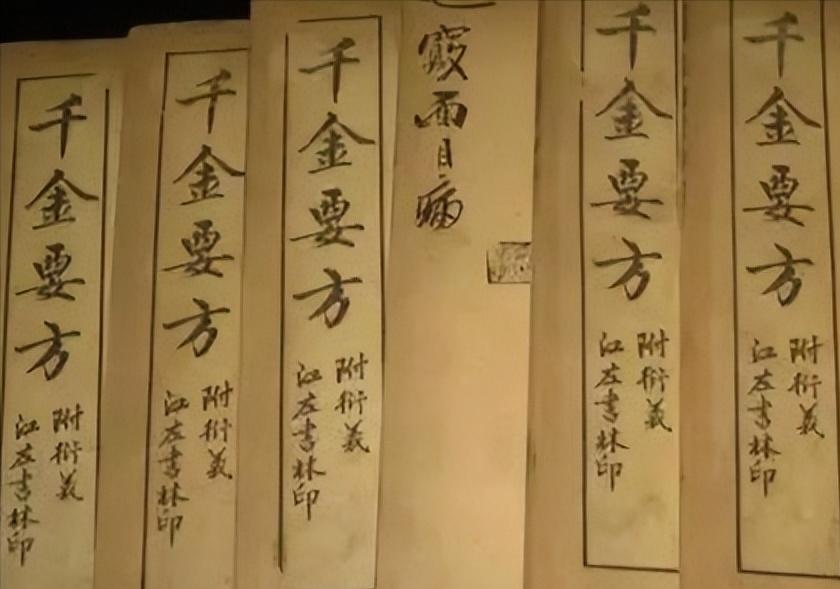 千金要方
附衍義
江左書林印
千金要方
附衍義
江左書林印
千金要方
附衍義
江左書林印
竅面目病
千金要方
附衍義
江左書林印
千金要方
附衍義
江左書林印